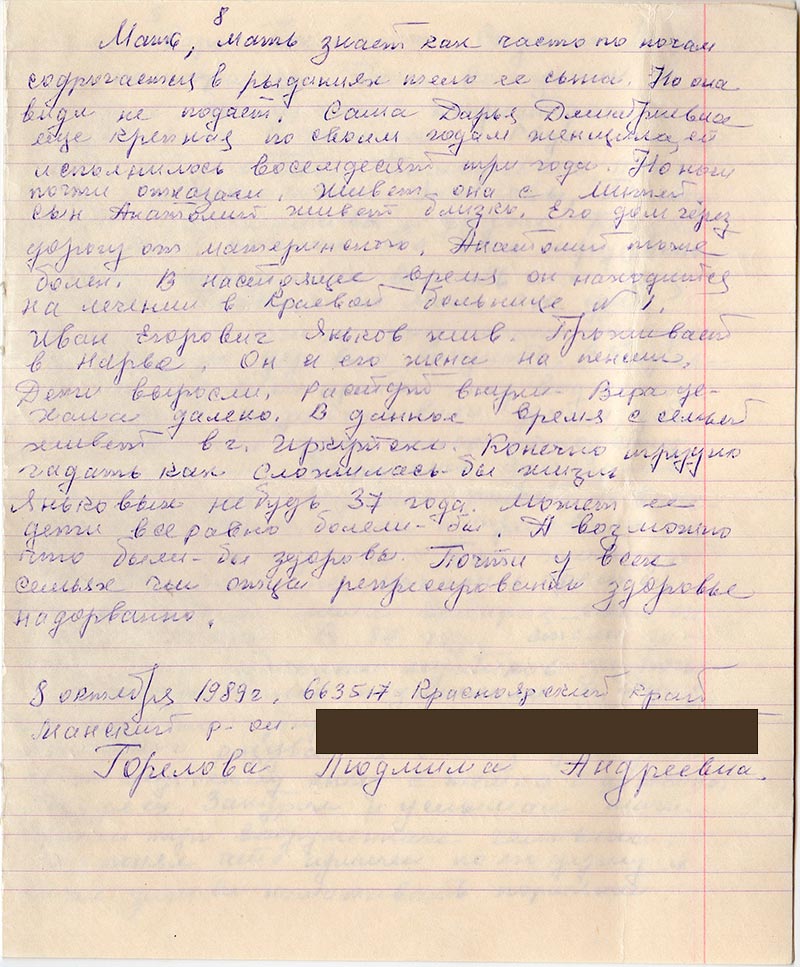 8
Мать, мать знает как часто по ночам
содрогается в рыданиях тело ее сына. Но она
виду не подает. Сама Дарья Дмитриевна
еще крепкая по своим годам женщина, ей
исполнилось восемдесят три года. Но ноги
почти отказали. Живет она с Мишей
сын Анатолий живет близко. Его дом через
дорогу от материнского. Анатолий тоже
болен. В настоящее время он находится
на лечении в Краевой больнице №1.
Иван Егорович Яньков жив. Проживает
в Нарве. Он и его жена на пенсии.
Дети выросли, растут внуки. Вера уе-
хала далеко. В данное время с семьей
живет в г. Иркутске. Конечно трудно
гадать как сложилась-бы жизнь
Яньковых не будь 37 года. Может ее
дети всеравно болели-бы. А возможно
что были-бы здоровы. Почти у всех
семьях чьи отцы репресированны здоровье
надорванно.
8 октября 1989г. 663517 Красноярский край
Манский р-он.
Горелова Людмила Андреевна.